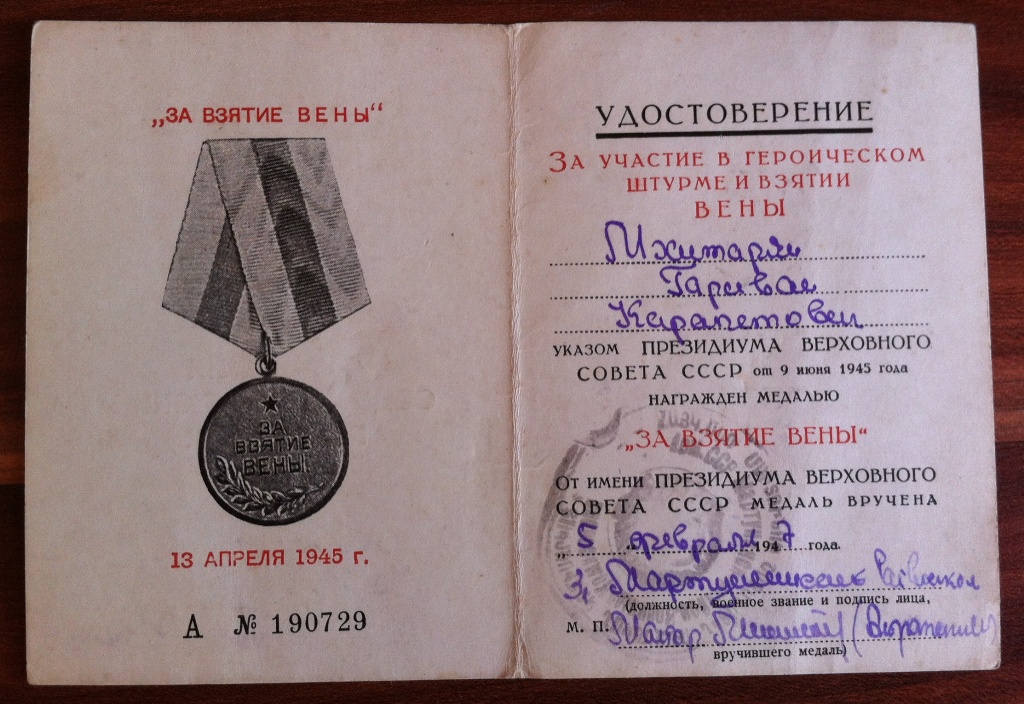 „ЗА ВЗЯТИЕ ВЕНЫ“
ЗА
ВЗЯТИЕ
ВЕНЫ
13 АПРЕЛЯ 1945 г.
А № 190729
УДОСТОВЕРЕНИЕ
ЗА УЧАСТИЕ В ГЕРОИЧЕСКОМ
ШТУРМЕ И ВЗЯТИИ
ВЕНЫ
Мхитарян
Карапетович
УКАЗОМ ПРЕЗИДИУМА ВЕРХОВНОГО
СОВЕТА СССР от 9 июня 1945 года
НАГРАЖДЕН МЕДАЛЬЮ
„ЗА ВЗЯТИЕ ВЕНЫ“
ОТ ИМЕНИ ПРЕЗИДИУМА ВЕРХОВНОГО
СОВЕТА СССР МЕДАЛЬ ВРУЧЕНА
„5 февраля 1947 года.
(должность, военное звание и подпись лица,
М. П.
вручившего медаль)